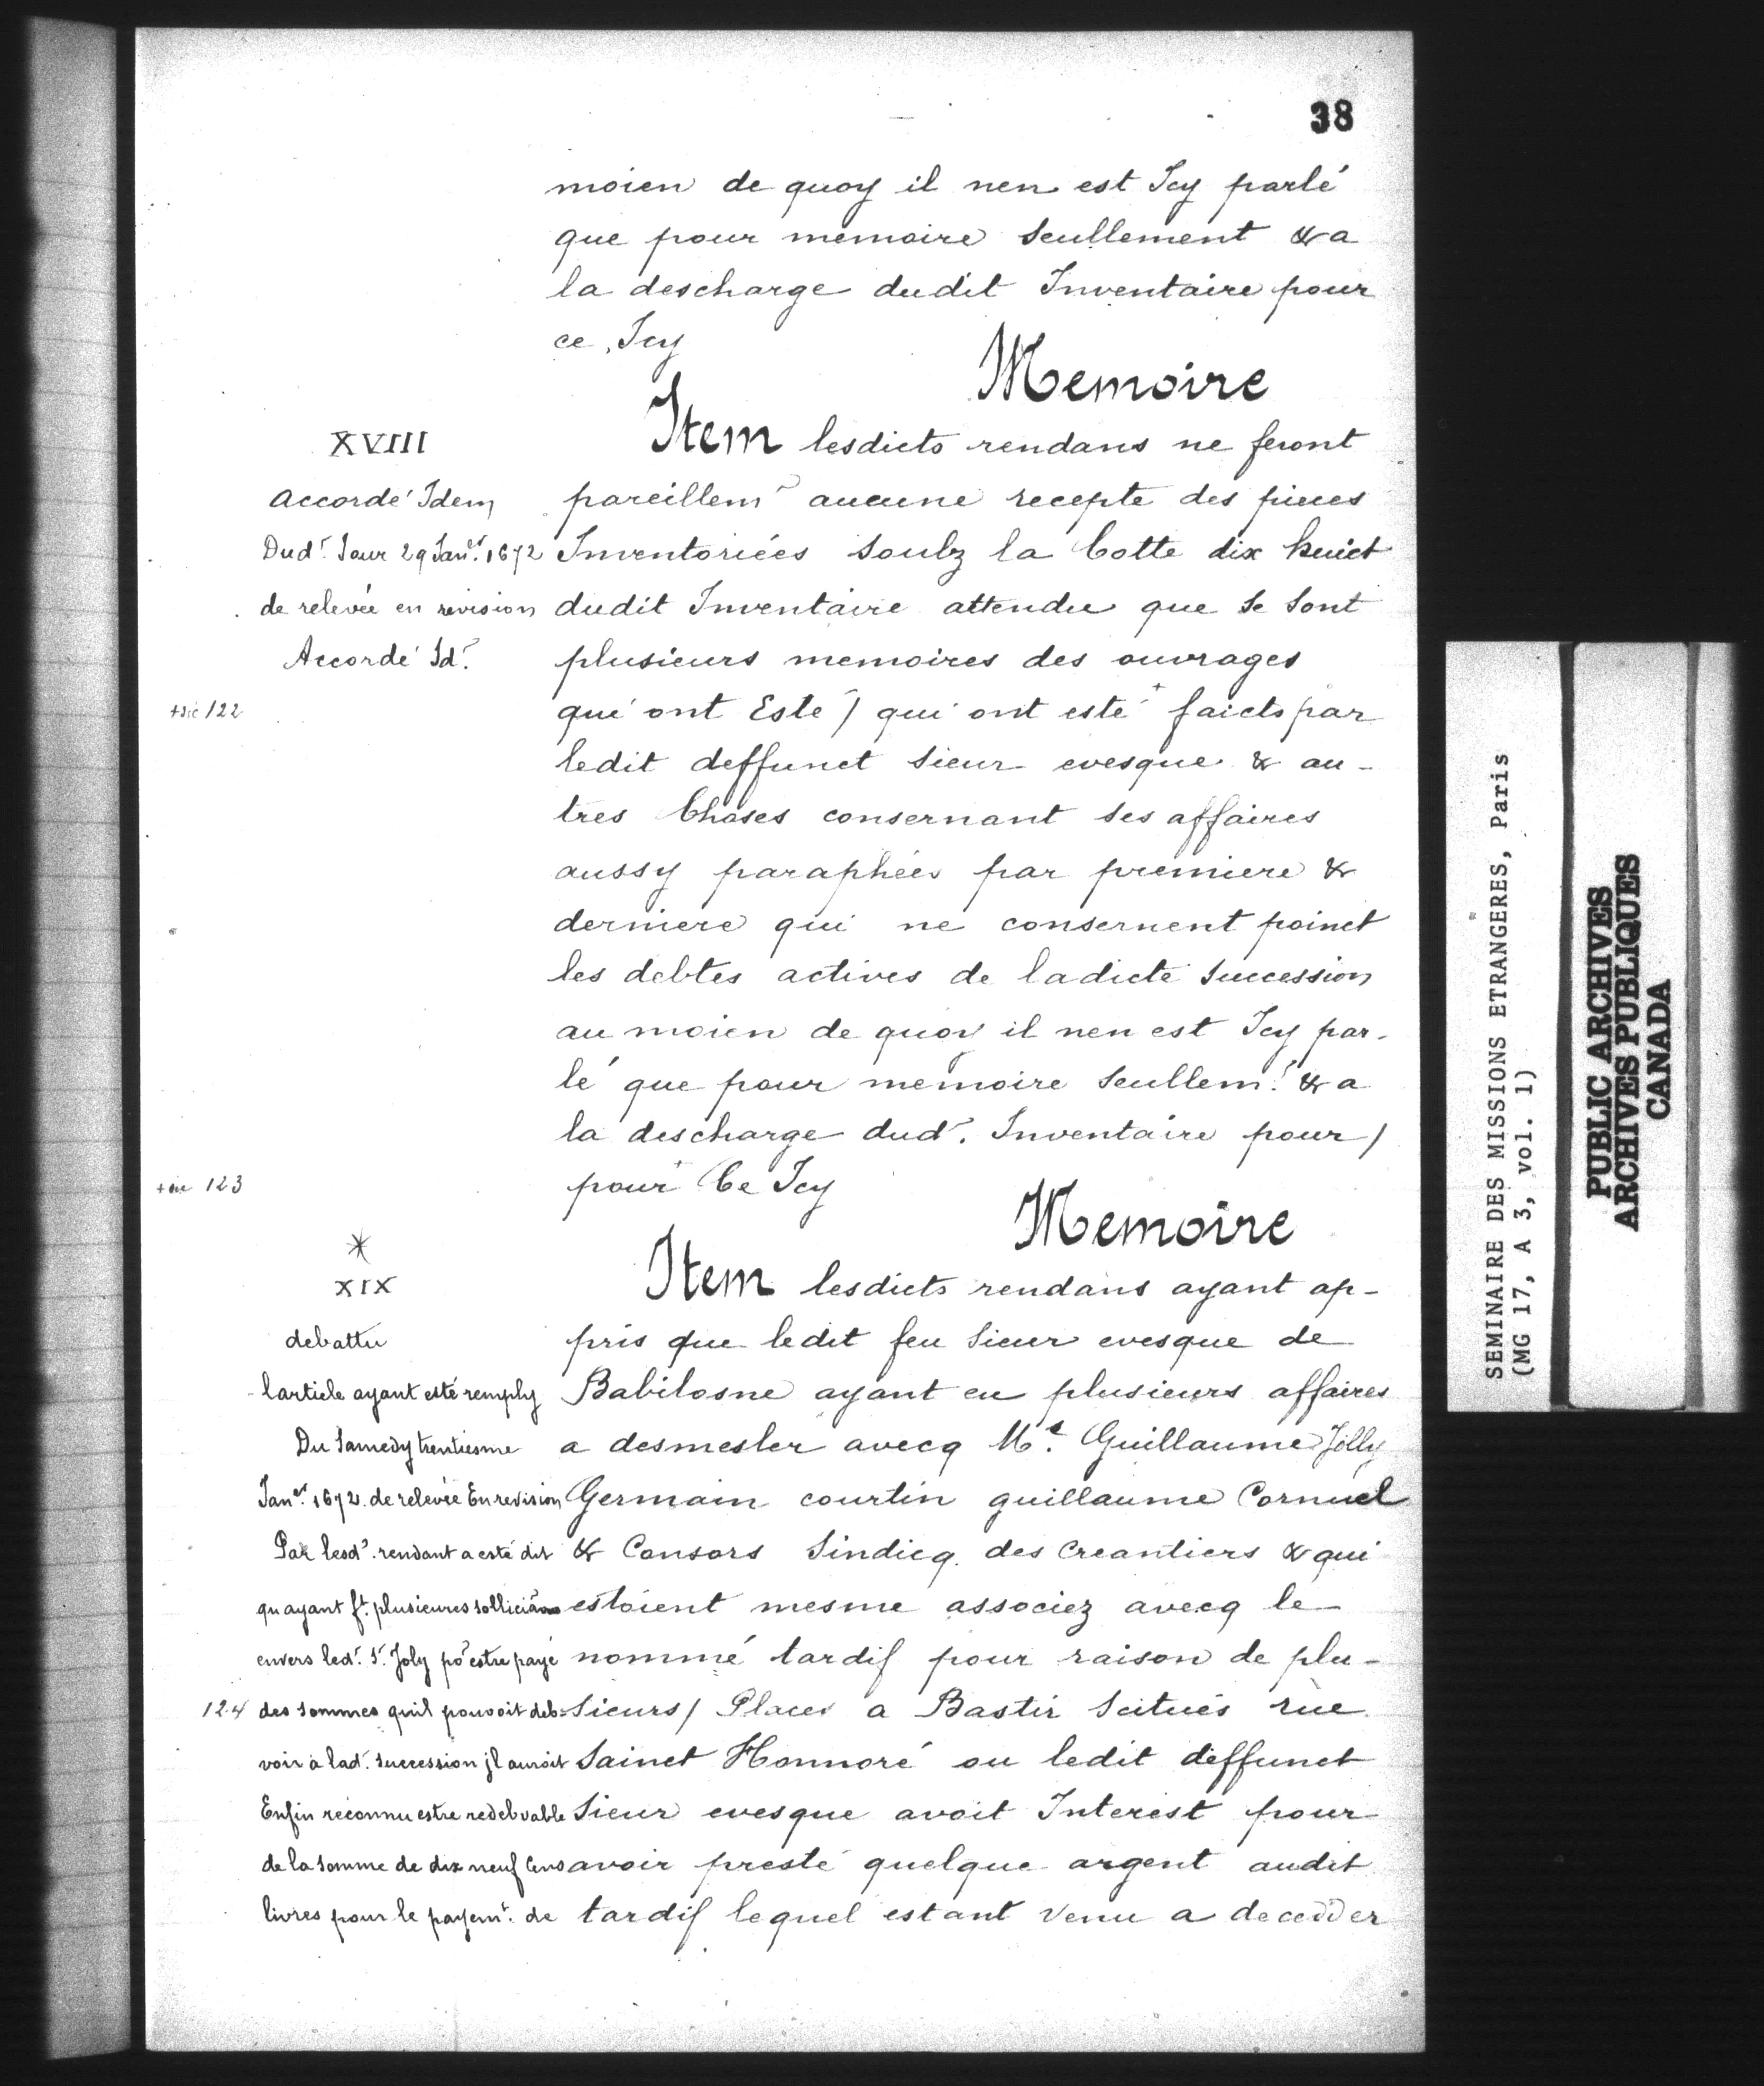 38
moien de quoy il nen est Icy parlé
que pour memoire seullement & a
la descharge dudit Inventaire pour
ce Icy
Memoire
XVIII
accordé Idem
Dud.t Jour 29 Jan.er 1672
de relevée en revision
Accordé Id.
+sic 122
Item lesdicts rendans ne feront
pareillemt aucune recepte des pieces
Inventoriées soubz la Cotte dix huict
dudit Inventaire attendu que se sont
plusieurs memoires des ouvrages
qui ont Esté / qui ont esté + faicts par
ledit deffunct sieur evesque & au-
tres Choses consernant ses affaires
aussy paraphées par premiere &
derniere qui ne consernent poinct
les debtes actives de ladicte succession
au moien de quoy il nen est Icy par-
lé que pour memoire seullem.t & a
la descharge dud. Inventaire pour /
+sic 123
pour + Ce Icy
Memoire
*
XIX
debattu
larticle ayant esté remply
Du Samedy trentiesme
Jan.er 1672. de relevée En revision
Par lesd. rendant a esté dit
quayant f.t plusieures solliciãons
envers led. S.r Joly po.r estre payé
124 des sommes quil pouvoit deb=
voir a lad. succession jl auroit
Enfin reconnu estre redebvable
de la somme de dix neuf Cens
livres pour le payem.t de
Item lesdicts rendans ayant ap-
pris que ledit feu sieur evesque de
Babilosne ayant eu plusieurs affaires
a desmesler avecq M.e Guillaume Jolly
Germain courtin guillaume Cornuel
& Consors Sindicq des Creantiers & qui
estoient mesme associez avecq le
nommé tardif pour raison de plu-
sieurs / Places a Bastir scitués rue
Sainct Honnoré ou ledit deffunct
sieur evesque avoit Interest pour
avoir presté quelque argent audit
tardif lequel estant venu a decedder
SEMINAIRE DES MISSIONS ETRANGERES, Paris
(MG 17, A 3, vol. 1)
PUBLIC ARCHIVES
ARCHIVES PUBLIQUES
CANADA